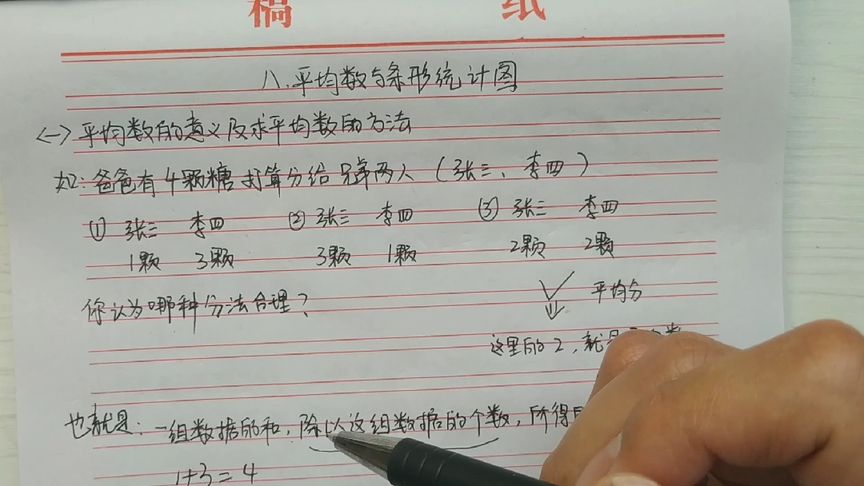 稿 纸
八.平均数与条形统计图
<一>平均数的意义及求平均数的方法
如:爸爸有4颗糖打算分给兄弟两人(张三、李四)
① 张三 李四 ② 张三 李四 ③ 张三 李四
1颗 3颗 3颗 1颗 2颗 2颗
你认为哪种分法合理?
平均分
这里的2,就是
也就是:一组数据的和,除以这组数据的个数,所得
1+3=4